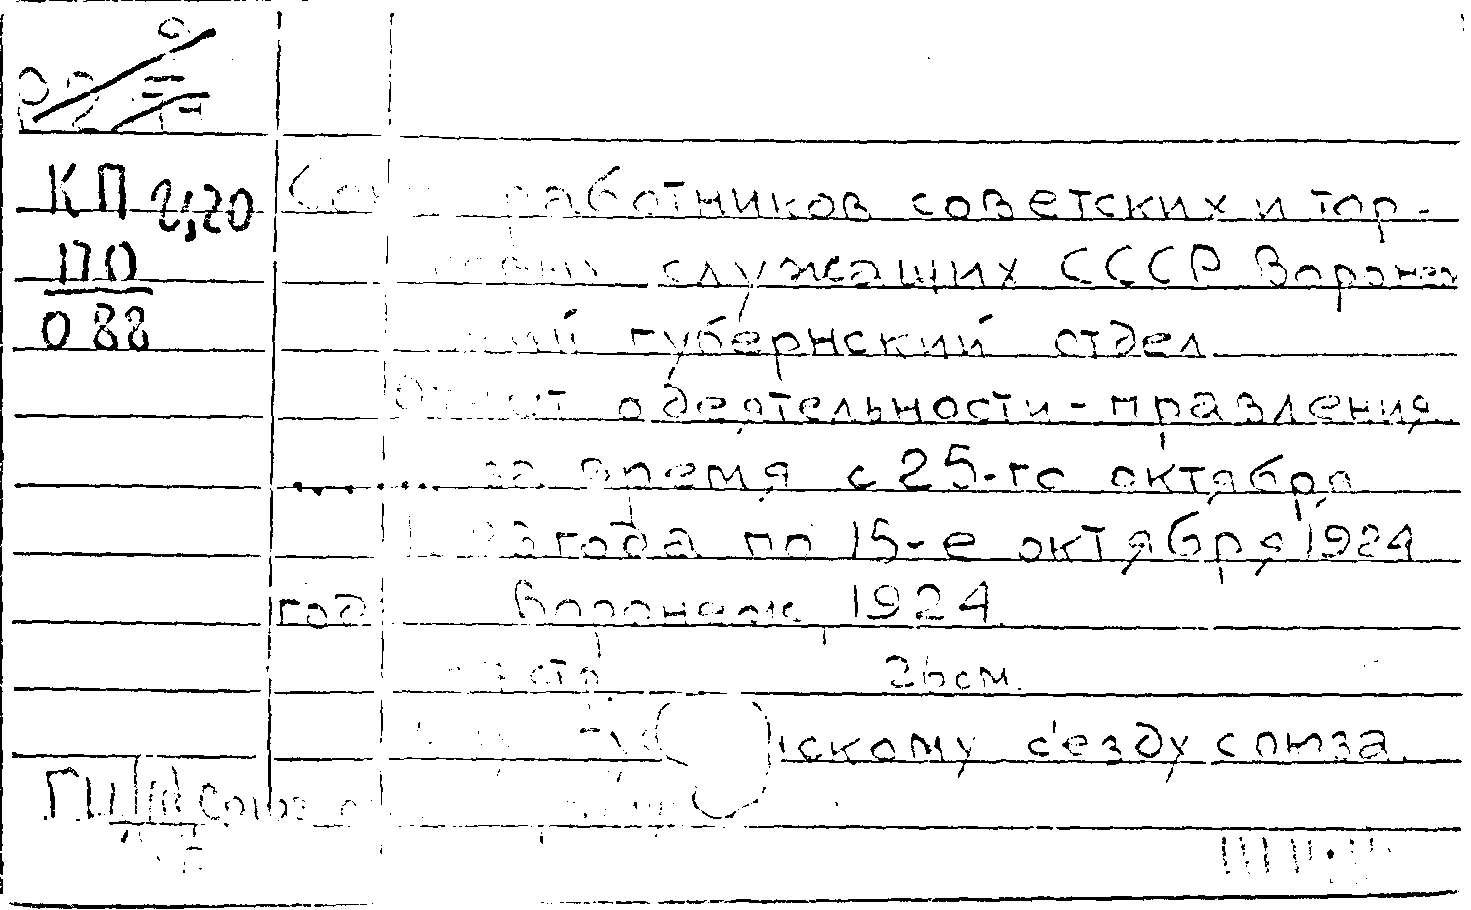 КП 2,20
П0
088
Союз работников советских и тор-
говых служащих СССР Воронеж
ский губернский отдел
Отчет о деятельности правления
за время с 25-го октября
1923 года по 15-е октября 1924
год Воронеж, 1924
стр. 26 см.
скому с'езду союза.
Союз